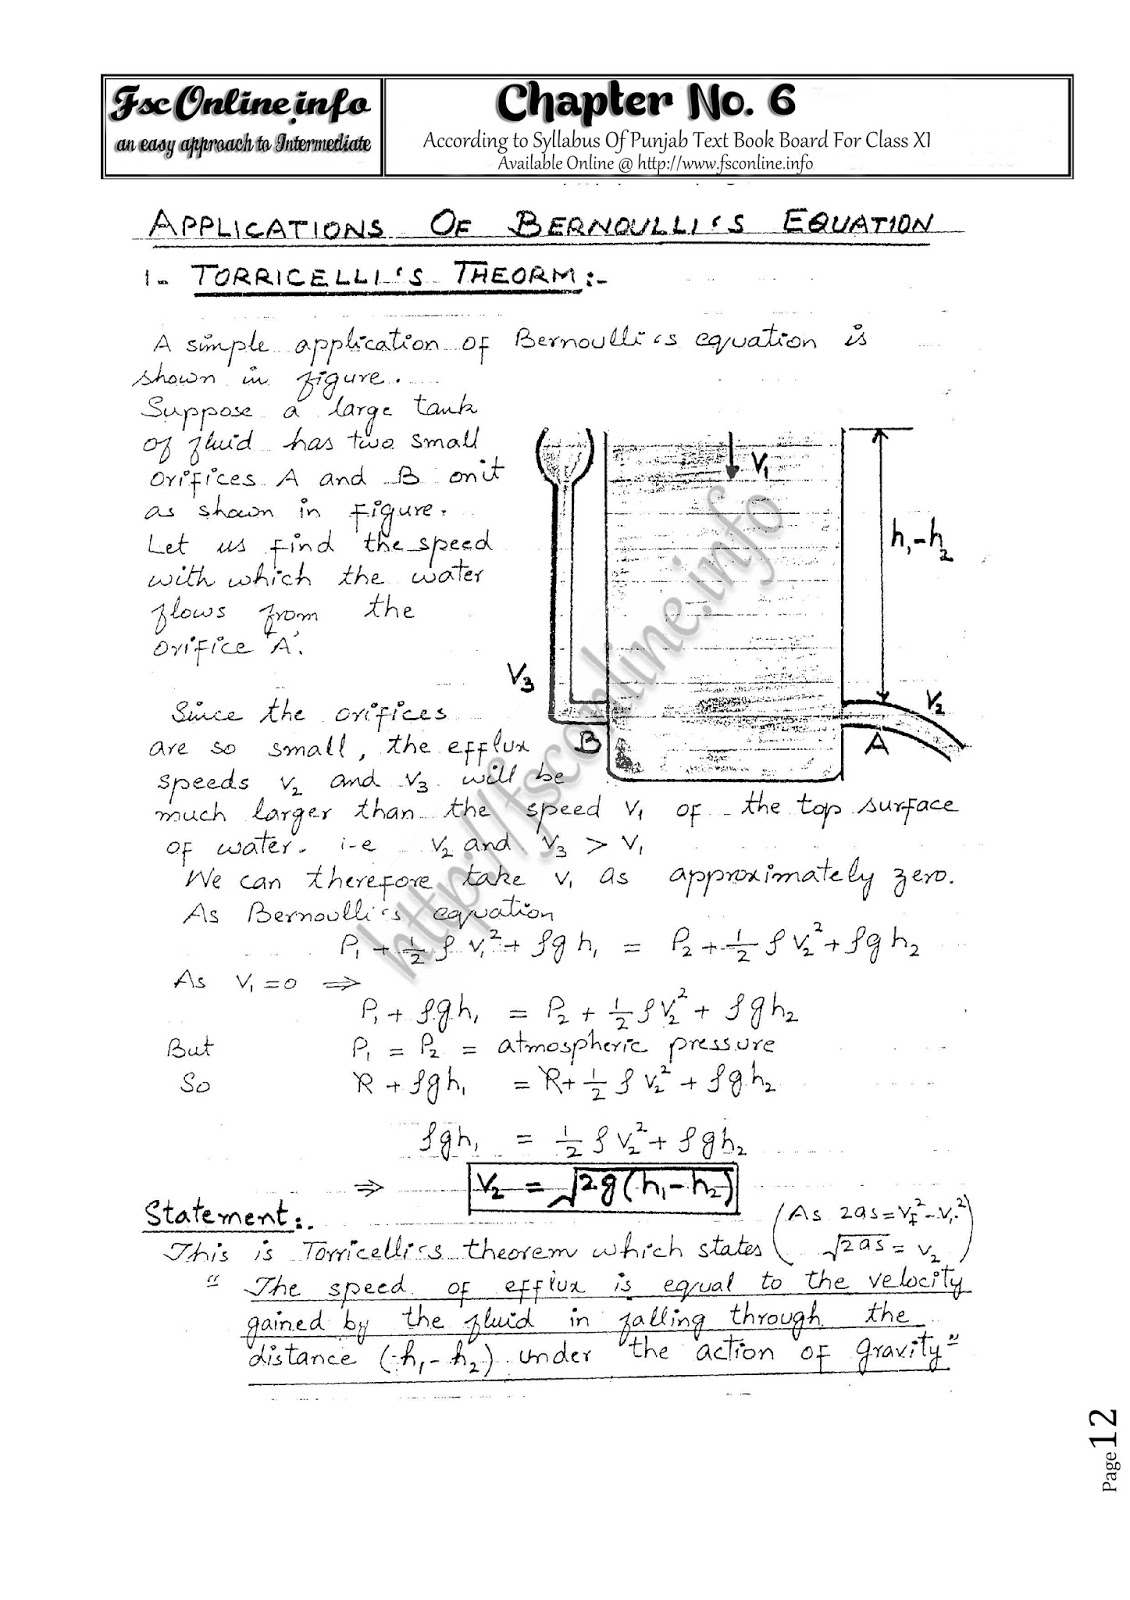 Fsc Online.info
an easy approach to Intermediate
Chapter No. 6
According to Syllabus Of Punjab Text Book Board For Class XI
Available Online @ http://www.fsconline.info
APPLICATIONS OF BERNOULLI'S EQUATION
1- TORRICELLI'S THEORM:-
A simple application of Bernoulli's equation is
shown in figure.
Suppose a large tank
of fluid has two small
orifices A and B on it
as shown in figure.
Let us find the speed
with which the water
flows from the
orifice 'A'.
V₁
h₁-h₂
V₃
V₂
B
A
Since the orifices
are so small, the efflux
speeds v₂ and v₃ will be
much larger than the speed v₁ of the top surface
of water. i-e v₂ and v₃ > v₁
We can therefore take v₁ as approximately zero.
As Bernoulli's equation
P₁ + ½ ρ v₁² + ρg h₁ = P₂ + ½ ρ v₂² + ρg h₂
As v₁ = 0 ⇒
P₁ + ρgh₁ = P₂ + ½ ρv₂² + ρgh₂
But P₁ = P₂ = atmospheric pressure
So P₁ + ρgh₁ = P₁ + ½ ρ v₂² + ρgh₂
ρgh₁ = ½ ρ v₂² + ρgh₂
⇒ v₂ = √2g(h₁-h₂)
Statement:.
(As 2as = v_f² - v_i²
√2as = v₂)
This is Torricelli's theorem which states
"The speed of efflux is equal to the velocity
gained by the fluid in falling through the
distance (h₁-h₂) under the action of gravity"
http://fsconline.info
Page 12